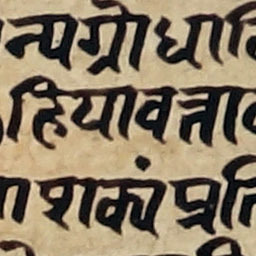 न्यग्रोधा
हियावत्ता
शक्यं प्रति